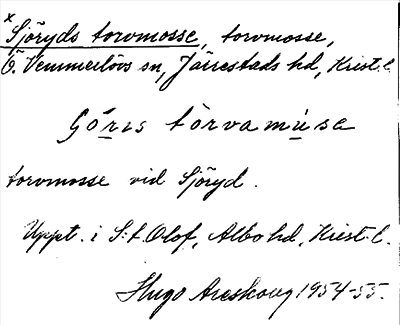 x Sjöryds torvmosse, torvmosse,
Ö. Vemmerlövs sn, Järrestads hd, Krist. l.
Göris tòrvamùse
torvmosse vid Sjöryd.
Uppt. i S:t Olof, Albo hd, Krist. l.
Hugo Areskoug 1954-55.